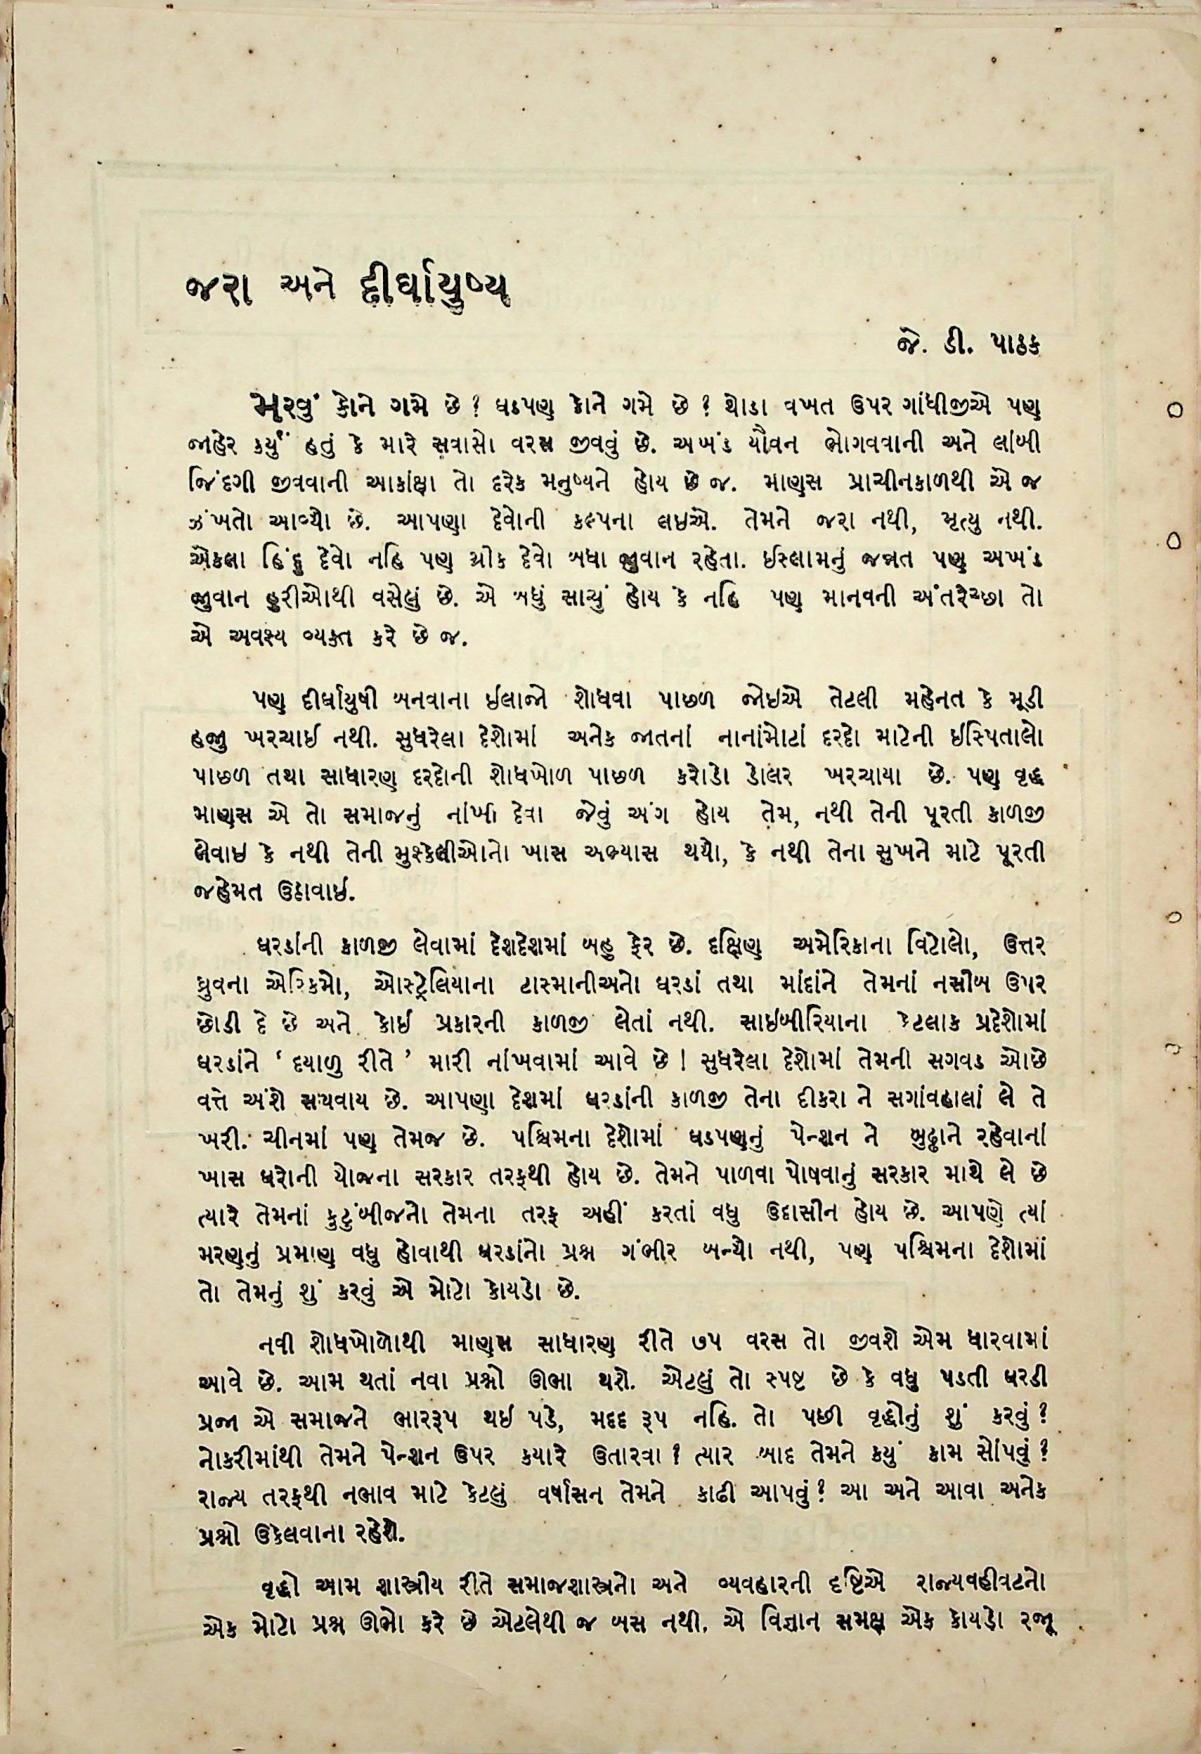 જરા અને દીર્ઘાયુષ્ય
જે. ડી. પાઠક
મરવું કોને ગમે છે? ઘડપણ કોને ગમે છે? થોડા વખત ઉપર ગાંધીજીએ પણ
જાહેર કર્યું હતું કે મારે સવાસો વરસ જીવવું છે. અખંડ યૌવન ભોગવવાની અને લાંબી
જિંદગી જીવવાની આકાંક્ષા તો દરેક મનુષ્યને હોય છે જ. માણસ પ્રાચીનકાળથી એ જ
ઝંખતો આવ્યો છે. આપણા દેવોની કલ્પના લઇએ. તેમને જરા નથી, મૃત્યુ નથી.
એકલા હિંદુ દેવો નહિ પણ ગ્રીક દેવો બધા જુવાન રહેતા. ઈસ્લામનું જન્નત પણ અખંડ
જુવાન હુરીઓથી વસેલું છે. એ બધું સાચું હોય કે નહિ પણ માનવની અંતરેચ્છા તો
એ અવશ્ય વ્યક્ત કરે છે જ.
પણ દીર્ઘાયુષી બનવાના ઈલાજો શોધવા પાછળ જોઇએ તેટલી મહેનત કે મૂડી
હજી ખરચાઈ નથી. સુધરેલા દેશોમાં અનેક જાતનાં નાનાંમોટાં દરદો માટેની ઇસ્પિતાલો
પાછળ તથા સાધારણ દરદોની શોધખોળ પાછળ કરોડો ડોલર ખરચાયા છે. પણ વૃદ્ધ
માણસ એ તો સમાજનું નાંખી દેવા જેવું અંગ હોય તેમ, નથી તેની પૂરતી કાળજી
લેવાઇ કે નથી તેની મુશ્કેલીઓનો ખાસ અભ્યાસ થયો, કે નથી તેના સુખને માટે પૂરતી
જહેમત ઉઠાવાઈ.
ઘરડાંની કાળજી લેવામાં દેશદેશમાં બહુ ફેર છે. દક્ષિણ અમેરિકાના વિટોલો, ઉત્તર
ધ્રુવના એસ્કિમો, ઓસ્ટ્રેલિયાના ટાસ્માનીઅનો ઘરડાં તથા માંદાંને તેમનાં નસીબ ઉપર
છોડી દે છે અને કોઇ પ્રકારની કાળજી લેતાં નથી. સાઇબીરિયાના કેટલાક પ્રદેશોમાં
ઘરડાંને ‘ દયાળુ રીતે ’ મારી નાંખવામાં આવે છે ! સુધરેલા દેશોમાં તેમની સગવડ ઓછે
વત્તે અંશે સચવાય છે. આપણા દેશમાં ઘરડાંની કાળજી તેના દીકરા ને સગાંવહાલાં લે તે
ખરી. ચીનમાં પણ તેમજ છે. પશ્ચિમના દેશોમાં ઘડપણનું પેન્શન ને બુઢ્ઢાને રહેવાનાં
ખાસ ઘરોની યોજના સરકાર તરફથી હોય છે. તેમને પાળવા પોષવાનું સરકાર માથે લે છે
ત્યારે તેમનાં કુટુંબીજનો તેમના તરફ અહીં કરતાં વધુ ઉદાસીન હોય છે. આપણે ત્યાં
મરણનું પ્રમાણ વધુ હોવાથી ઘરડાંનો પ્રશ્ન ગંભીર બન્યો નથી, પણ પશ્ચિમના દેશોમાં
તો તેમનું શું કરવું એ મોટો કોયડો છે.
નવી શોધખોળોથી માણસ સાધારણ રીતે ૭૫ વરસ તો જીવશે એમ ધારવામાં
આવે છે. આમ થતાં નવા પ્રશ્નો ઊભા થશે. એટલું તો સ્પષ્ટ છે કે વધુ પડતી ઘરડી
પ્રજા એ સમાજને ભારરૂપ થઇ પડે, મદદ રૂપ નહિ. તો પછી વૃદ્ધોનું શું કરવું?
નોકરીમાંથી તેમને પેન્શન ઉપર કયારે ઉતારવા? ત્યાર બાદ તેમને કયું કામ સોંપવું?
રાજ્ય તરફથી નભાવ માટે કેટલું વર્ષાસન તેમને કાઢી આપવું? આ અને આવા અનેક
પ્રશ્નો ઉકેલવાના રહેશે.
વૃદ્ધો આમ શાસ્ત્રીય રીતે સમાજશાસ્ત્રનો અને વ્યવહારની દૃષ્ટિએ રાજ્યવહીવટનો
એક મોટો પ્રશ્ન ઊભો કરે છે એટલેથી જ બસ નથી. એ વિજ્ઞાન સમક્ષ એક કોયડો રજૂ